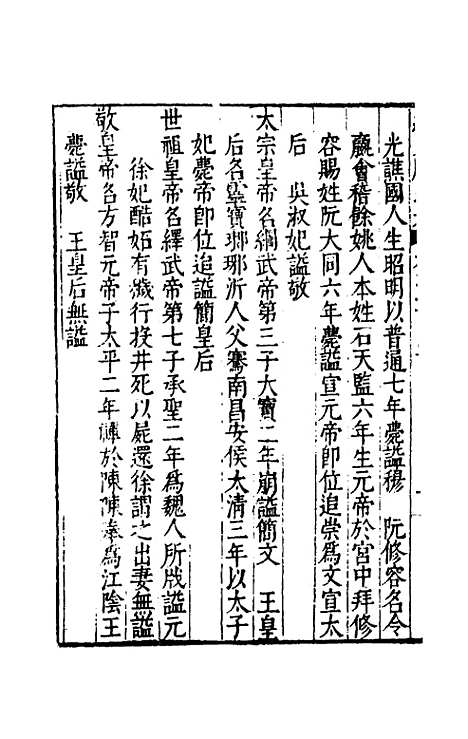 光譙國人生昭明以普通七年薨謚穆　阮修容名令
嬴會稽餘姚人本姓石天監六年生元帝於宮中拜修
容賜姓阮大同六年薨謚宣元帝即位追崇爲文宣太
后　吳淑妃謚敬
太宗皇帝名綱武帝第三子大寶二年崩謚簡文　王皇
后名靈賔瑯琊沂人父騫南昌安侯太清三年以太子
妃薨帝即位追謚簡皇后
世祖皇帝名繹武帝第七子承聖二年爲魏人所戕謚元
徐妃酷妬有穢行投井死以屍還徐謂之出妻無謚
敬皇帝名方智元帝子太平二年禪於陳陳奉爲江陰王
薨謚敬　王皇后無謚